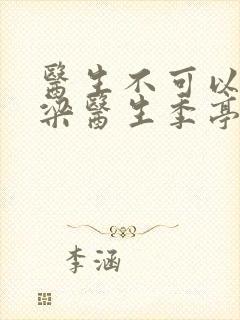 醫生不可以
梁醫生季亭
李涵